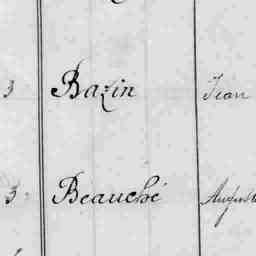 3 Bazin Jean
3 Beauché August